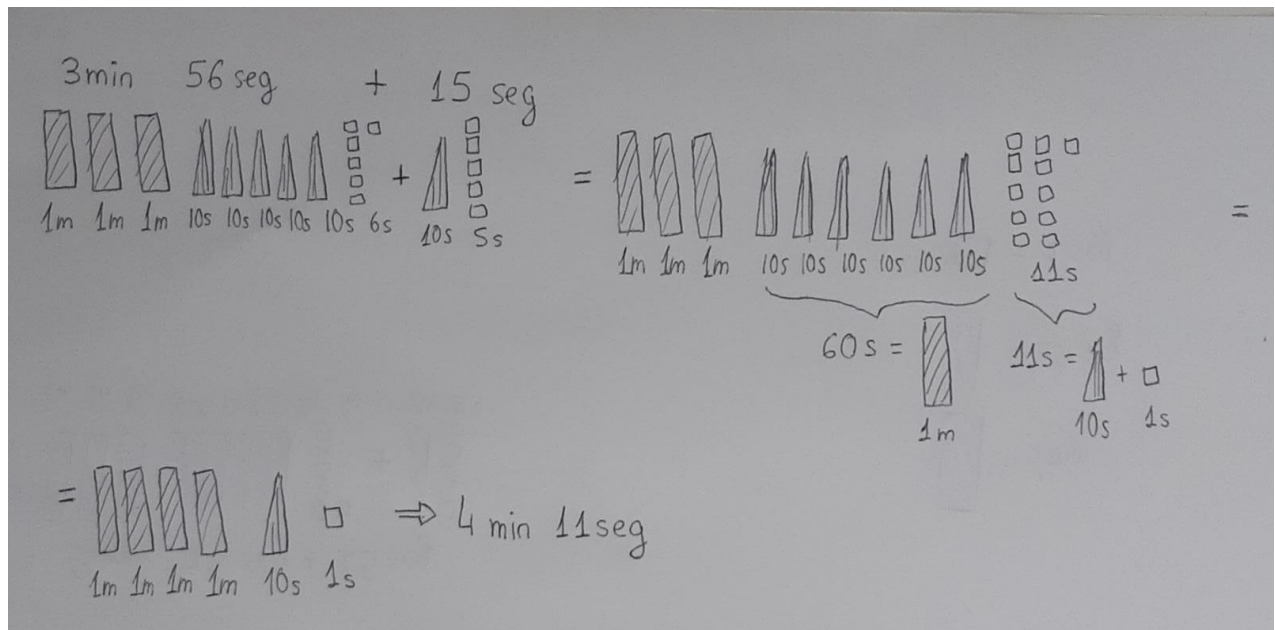 3min 56 seg + 15 seg
1m 1m 1m 10s 10s 10s 10s 10s 6s + 10s 5s = 1m 1m 1m 10s 10s 10s 10s 10s 10s 11s =
60s = 1m 11s = 10s + 1s
= 1m 1m 1m 1m 10s 1s ⇒ 4 min 11seg